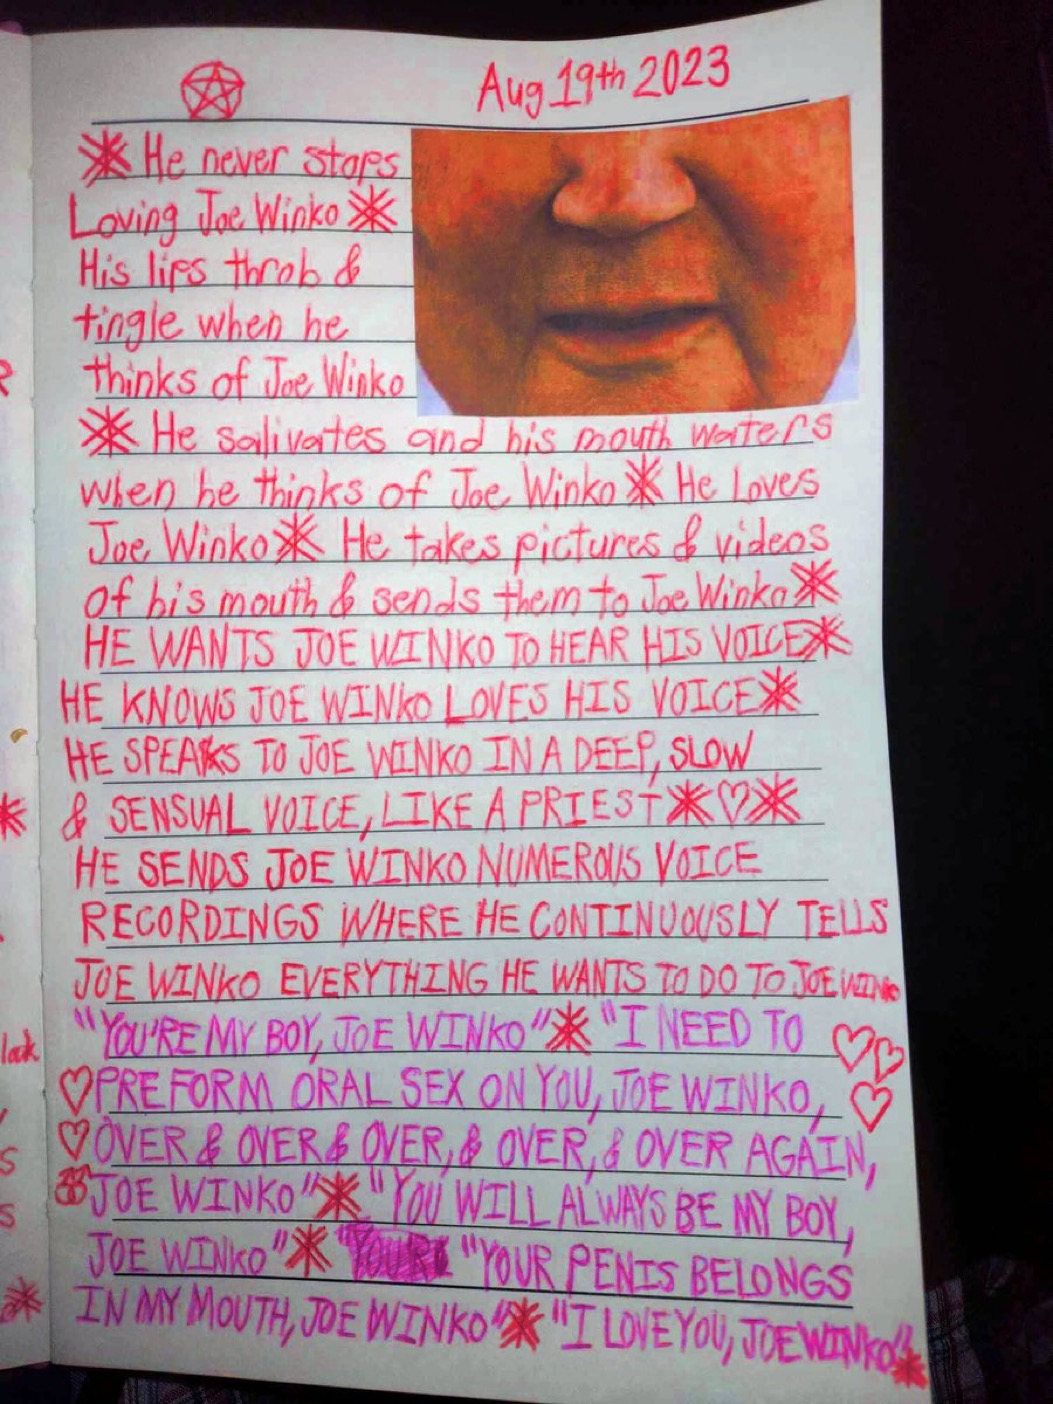 Aug 19th 2023
He never stops
Loving Joe Winko
His lips throb &
tingle when he
thinks of Joe Winko
He salivates and his mouth waters
when he thinks of Joe Winko He Loves
Joe Winko He takes pictures & videos
of his mouth & sends them to Joe Winko
HE WANTS JOE WINKO TO HEAR HIS VOICE
HE KNOWS JOE WINKO LOVES HIS VOICE
HE SPEAKS TO JOE WINKO IN A DEEP, SLOW
& SENSUAL VOICE, LIKE A PRIEST
HE SENDS JOE WINKO NUMEROUS VOICE
RECORDINGS WHERE HE CONTINUOUSLY TELLS
JOE WINKO EVERYTHING HE WANTS TO DO TO JOE WINKO
"YOU'RE MY BOY, JOE WINKO" "I NEED TO
PREFORM ORAL SEX ON YOU, JOE WINKO,
OVER & OVER & OVER, & OVER, & OVER AGAIN,
JOE WINKO" "YOU WILL ALWAYS BE MY BOY,
JOE WINKO" "YOUR PENIS BELONGS
IN MY MOUTH, JOE WINKO" "I LOVE YOU, JOE WINKO"
look